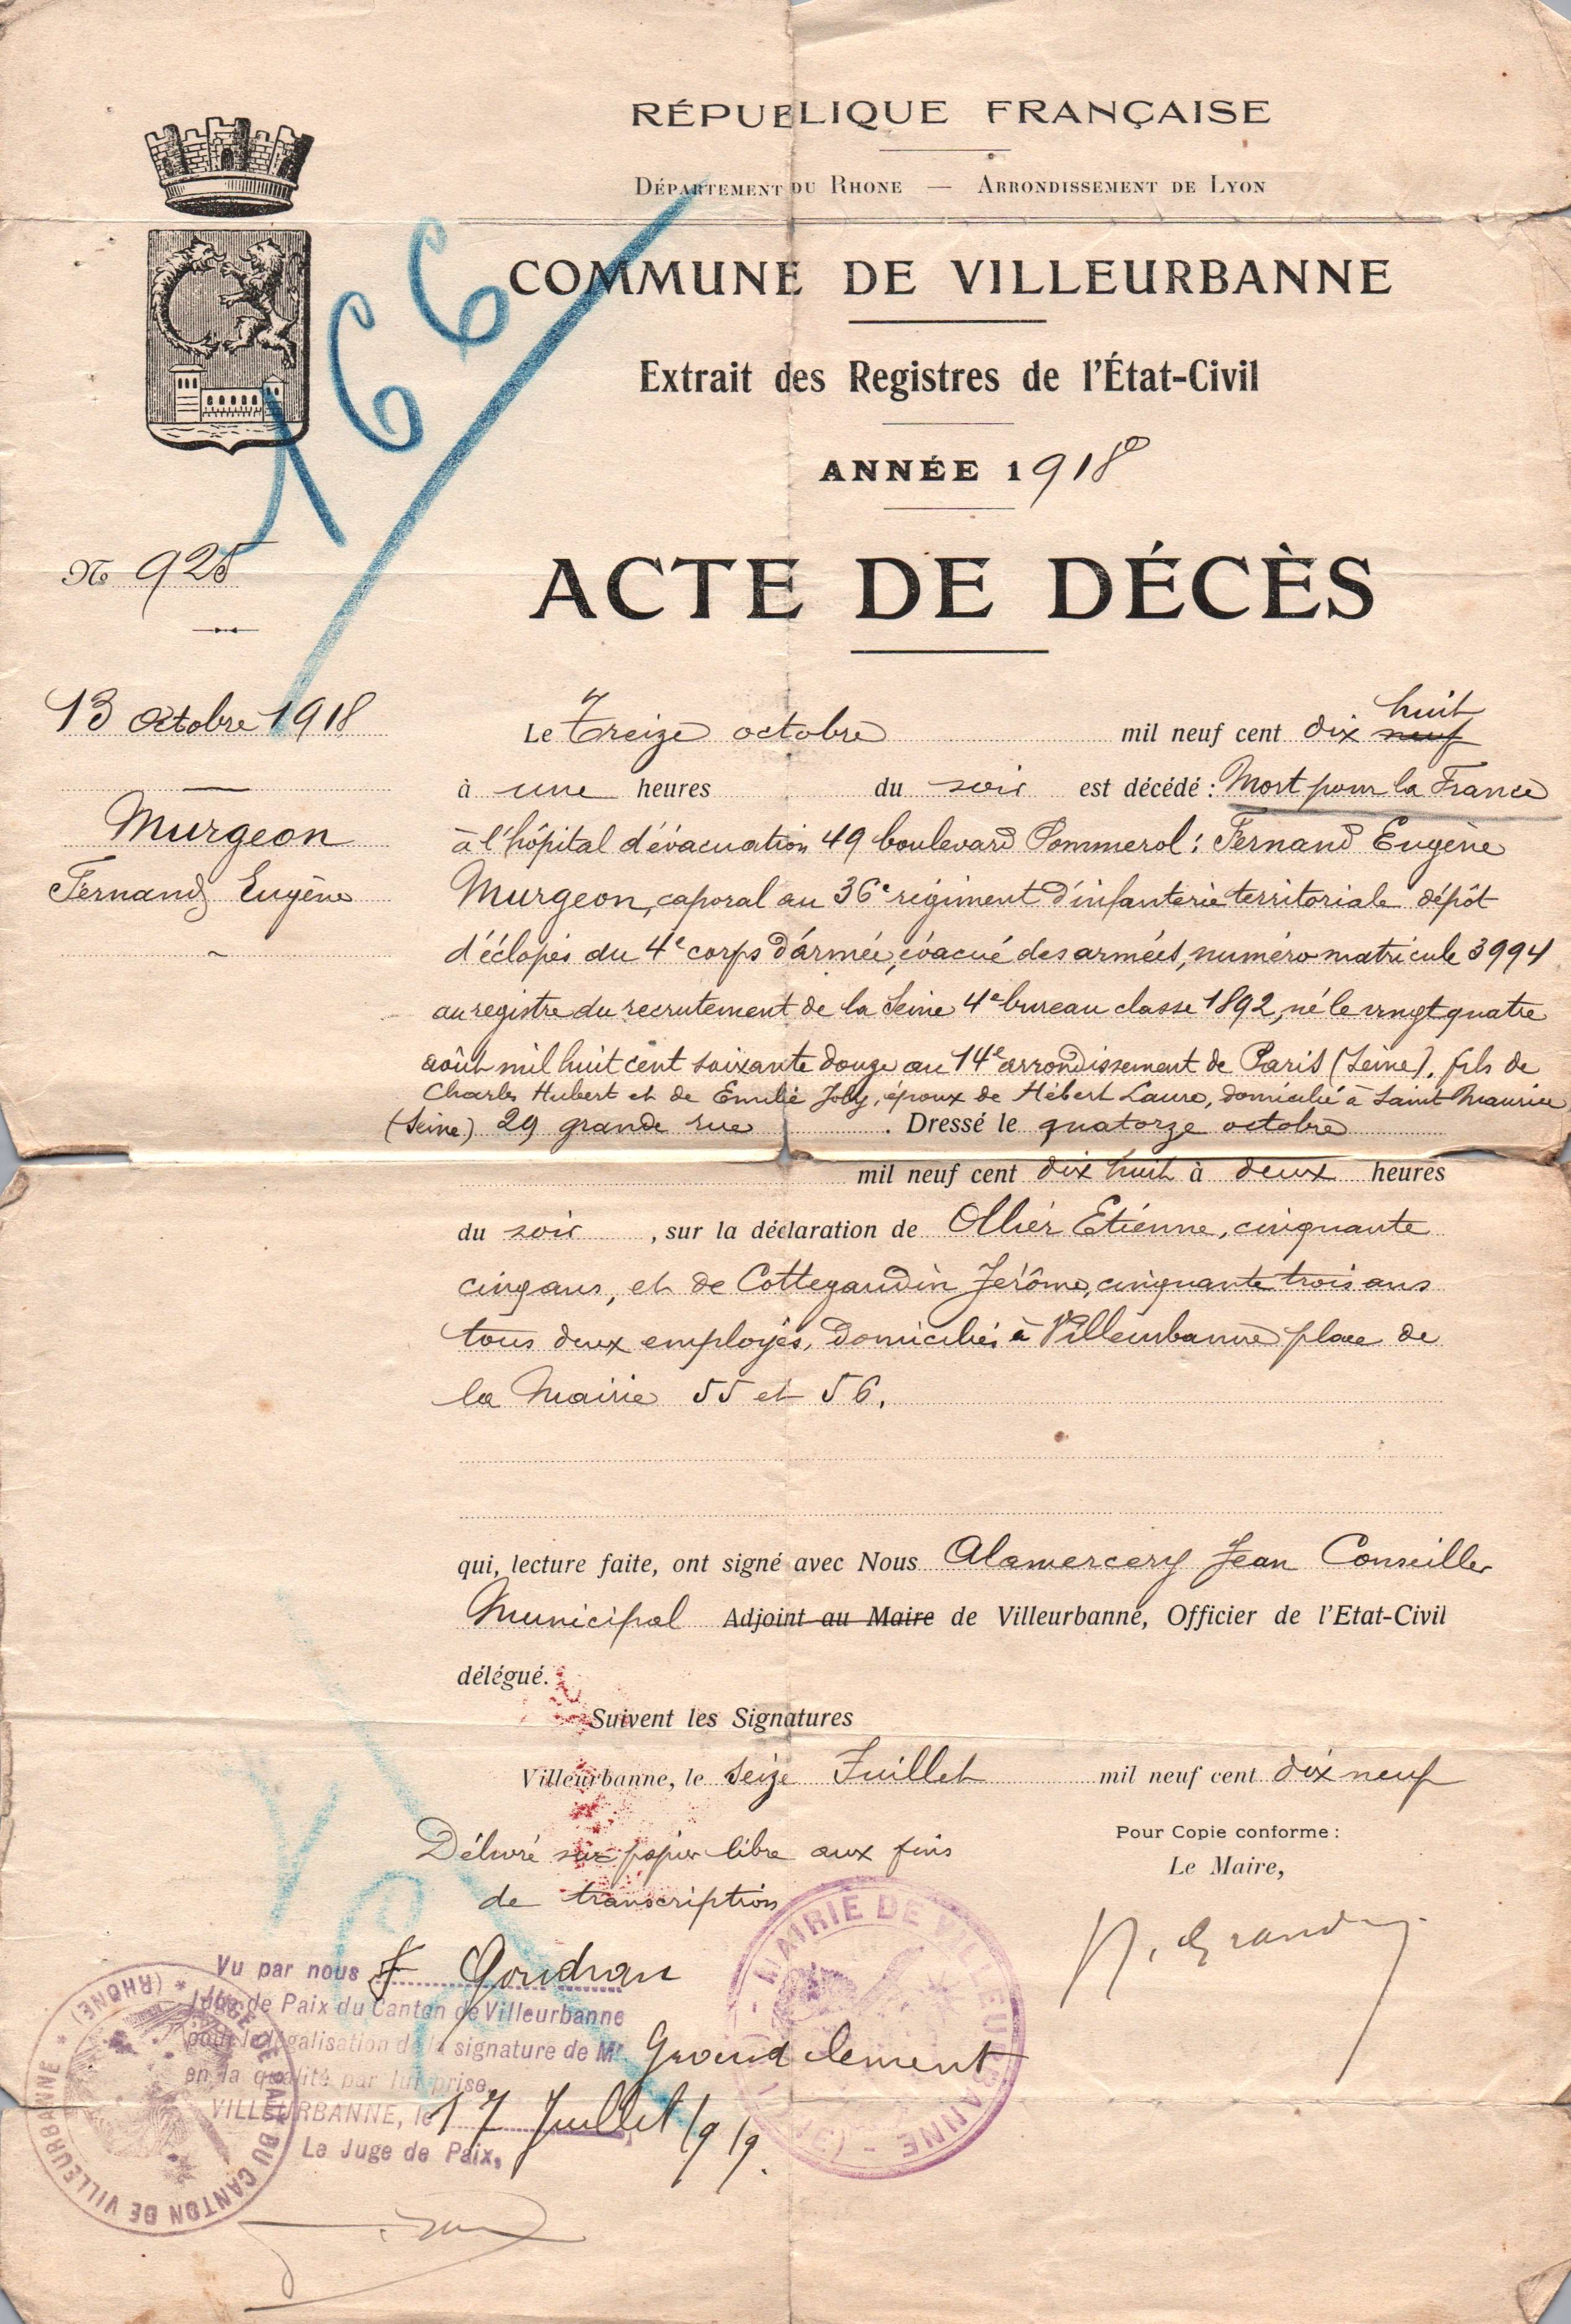 RÉPUBLIQUE FRANÇAISE
DÉPARTEMENT DU RHONE — ARRONDISSEMENT DE LYON
COMMUNE DE VILLEURBANNE
Extrait des Registres de l'État-Civil
ANNÉE 1918
166
N° 925
ACTE DE DÉCÈS
13 Octobre 1918
Murgeon
Fernand Eugène
Le Treize octobre mil neuf cent dix neuf huit
à une heures du soir est décédé : Mort pour la France
à l'hôpital d'évacuation 49 boulevard Pommerol : Fernand Eugène
Murgeon, caporal au 36e régiment d'infanterie territoriale dépôt
d'éclopés du 4e corps d'armée, évacué des armées, numéro matricule 3994
au registre du recrutement de la Seine 4e bureau classe 1892, né le vingt quatre
août mil huit cent soixante douze au 14e arrondissement de Paris (Seine). fils de
Charles Hubert et de Emilie Joly, époux de Hébert Laure, domicilié à Saint Maurice
(Seine) 29 grande rue . Dressé le quatorze octobre
mil neuf cent dix huit à deux heures
du soir , sur la déclaration de Ollier Etienne, cinquante
cinq ans, et de Cottegaudin Jérôme, cinquante trois ans
tous deux employés, domiciliés à Villeurbanne place de
la Mairie 55 et 56.
qui, lecture faite, ont signé avec Nous Alamercery Jean Conseiller
Municipal Adjoint au Maire de Villeurbanne, Officier de l'Etat-Civil
délégué.
Suivent les Signatures
Villeurbanne, le Seize Juillet mil neuf cent dix neuf
Délivré sur papier libre aux fins
de transcription
Pour Copie conforme :
Le Maire,
MAIRIE DE VILLEURBANNE
Vu par nous F Goudran
Juge de Paix du Canton de Villeurbanne
pour la légalisation de la signature de Mr Grandclement
en la qualité par lui prise.
VILLEURBANNE, le 17 Juillet 1919.
Le Juge de Paix,
JUGE DE PAIX DU CANTON DE VILLEURBANNE * (RHONE) *